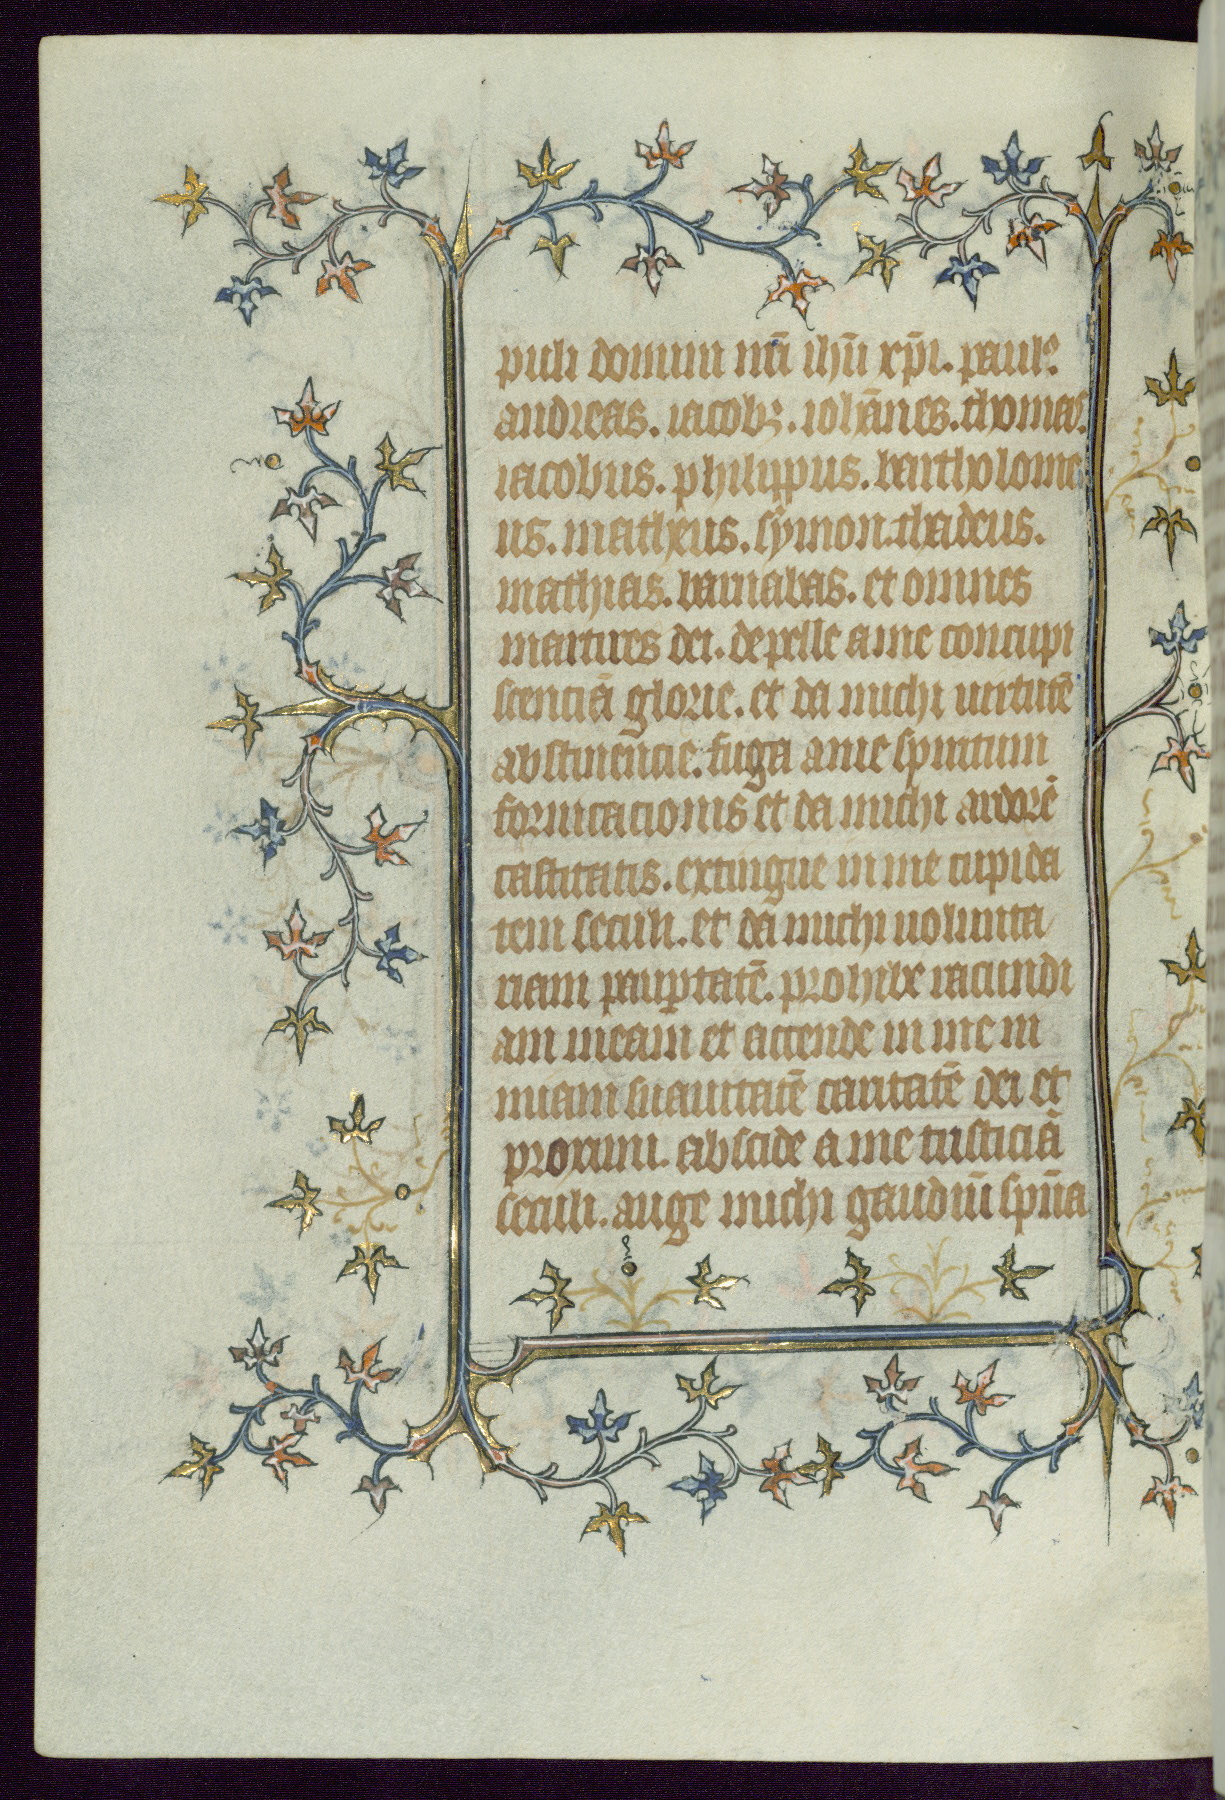 puli domini nr̄i ihū xp̄i. paulꝰ.
andreas. iacobꝫ. ioh̄anes. thomas.
iacobus. philippus. bartholome
us. matheus. symon. thadeus.
mathias. barnabas. et omnes
martires dei. depelle a me concupi
scenciā glorie. et da michi uirtutē
abstinencie. fuga a me spiritum
fornicacionis et da michi ardorē
castitatis. extingue in me cupida
tem seculi. et da michi uolunta
riam paup̱tatē. prohibe iacundi
am meam et accende in me in
nuam suauitatē caritatē dei et
proximi. abscide a me tristiciā
seculi. auge michi gaudiū sp̄ua